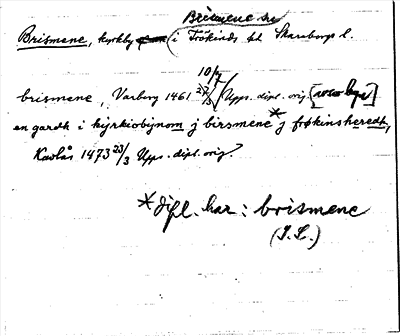 Brismene sn
Brismene, kyrkby i Frökinds hd Skaraborgs l.
10/7
brismene, Varberg 1461 27/3 Upps. dipl. orig.
en gardh i kyrkiobynom j birsmene * j frøkinsheredt,
Kavlås 1473 23/3 Upps. dipl. orig.
* dipl. har: brismene
(I. L.)